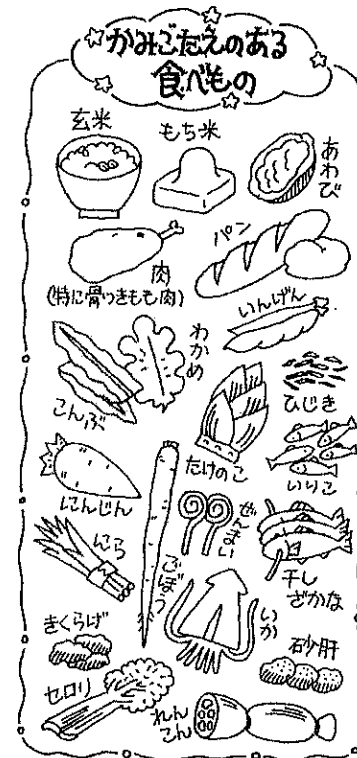 かみごたえのある
食べもの
玄米
もち米
あわび
肉
(特に骨つきもも肉)
パン
いんげん
わかめ
こんぶ
たけのこ
ひじき
いりこ
にんじん
ごぼう
ぜんまい
にら
干し
ざかな
いか
きくらげ
砂肝
セロリ
れん
こん